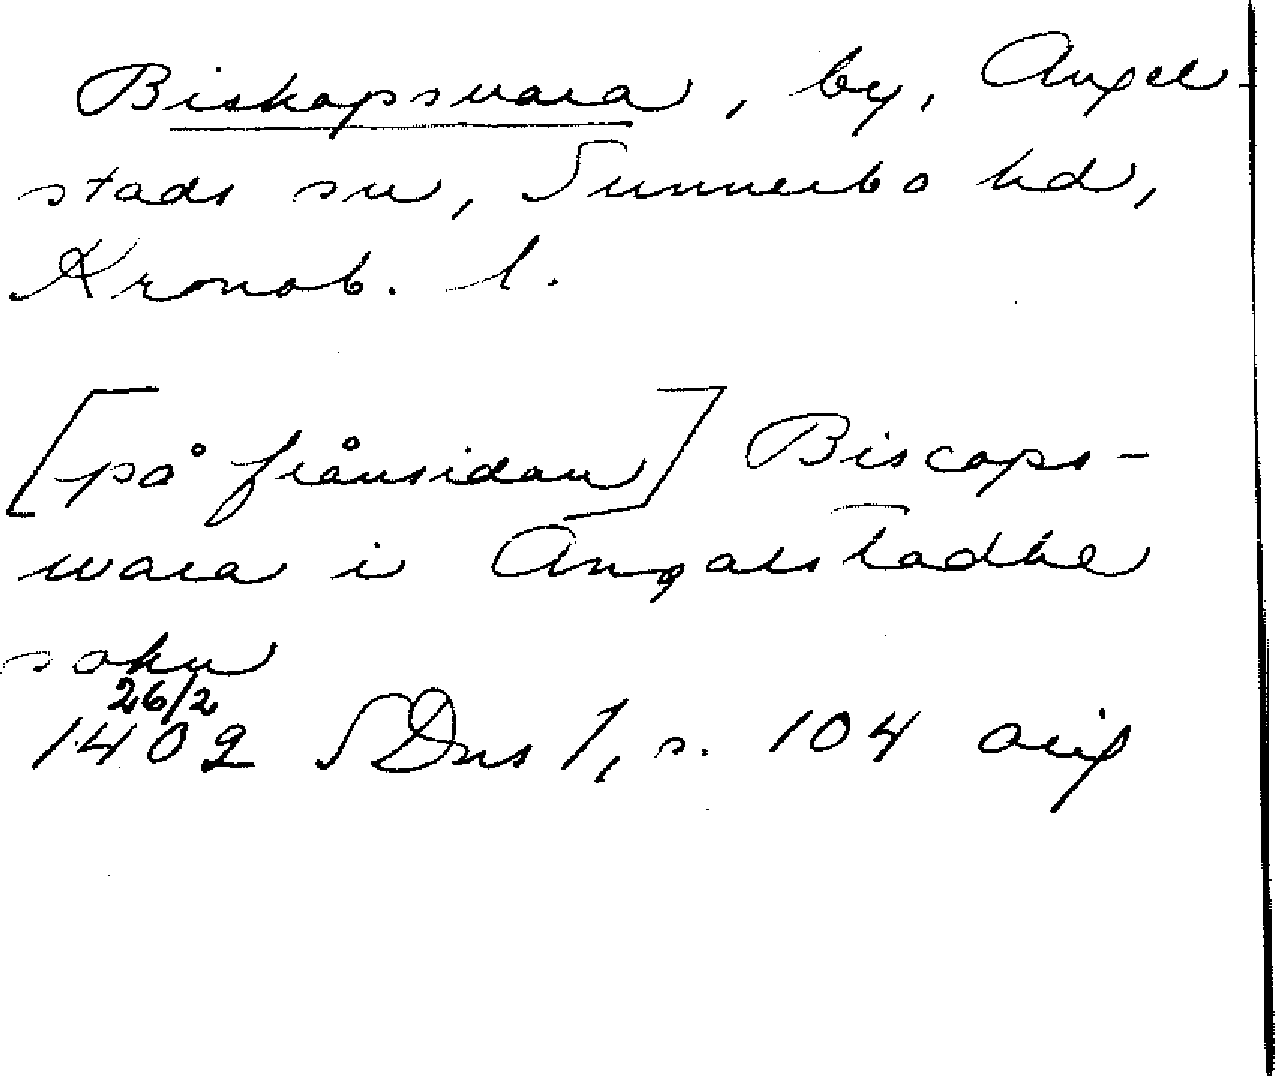 Biskopsvara, by, Angel-
stads sn, Sunnerbo hd,
Kronob. l.
[på frånsidan] Biscops-
wara i Angarstadhe
sokn
26/2
1402 SDns 1, s. 104 orig